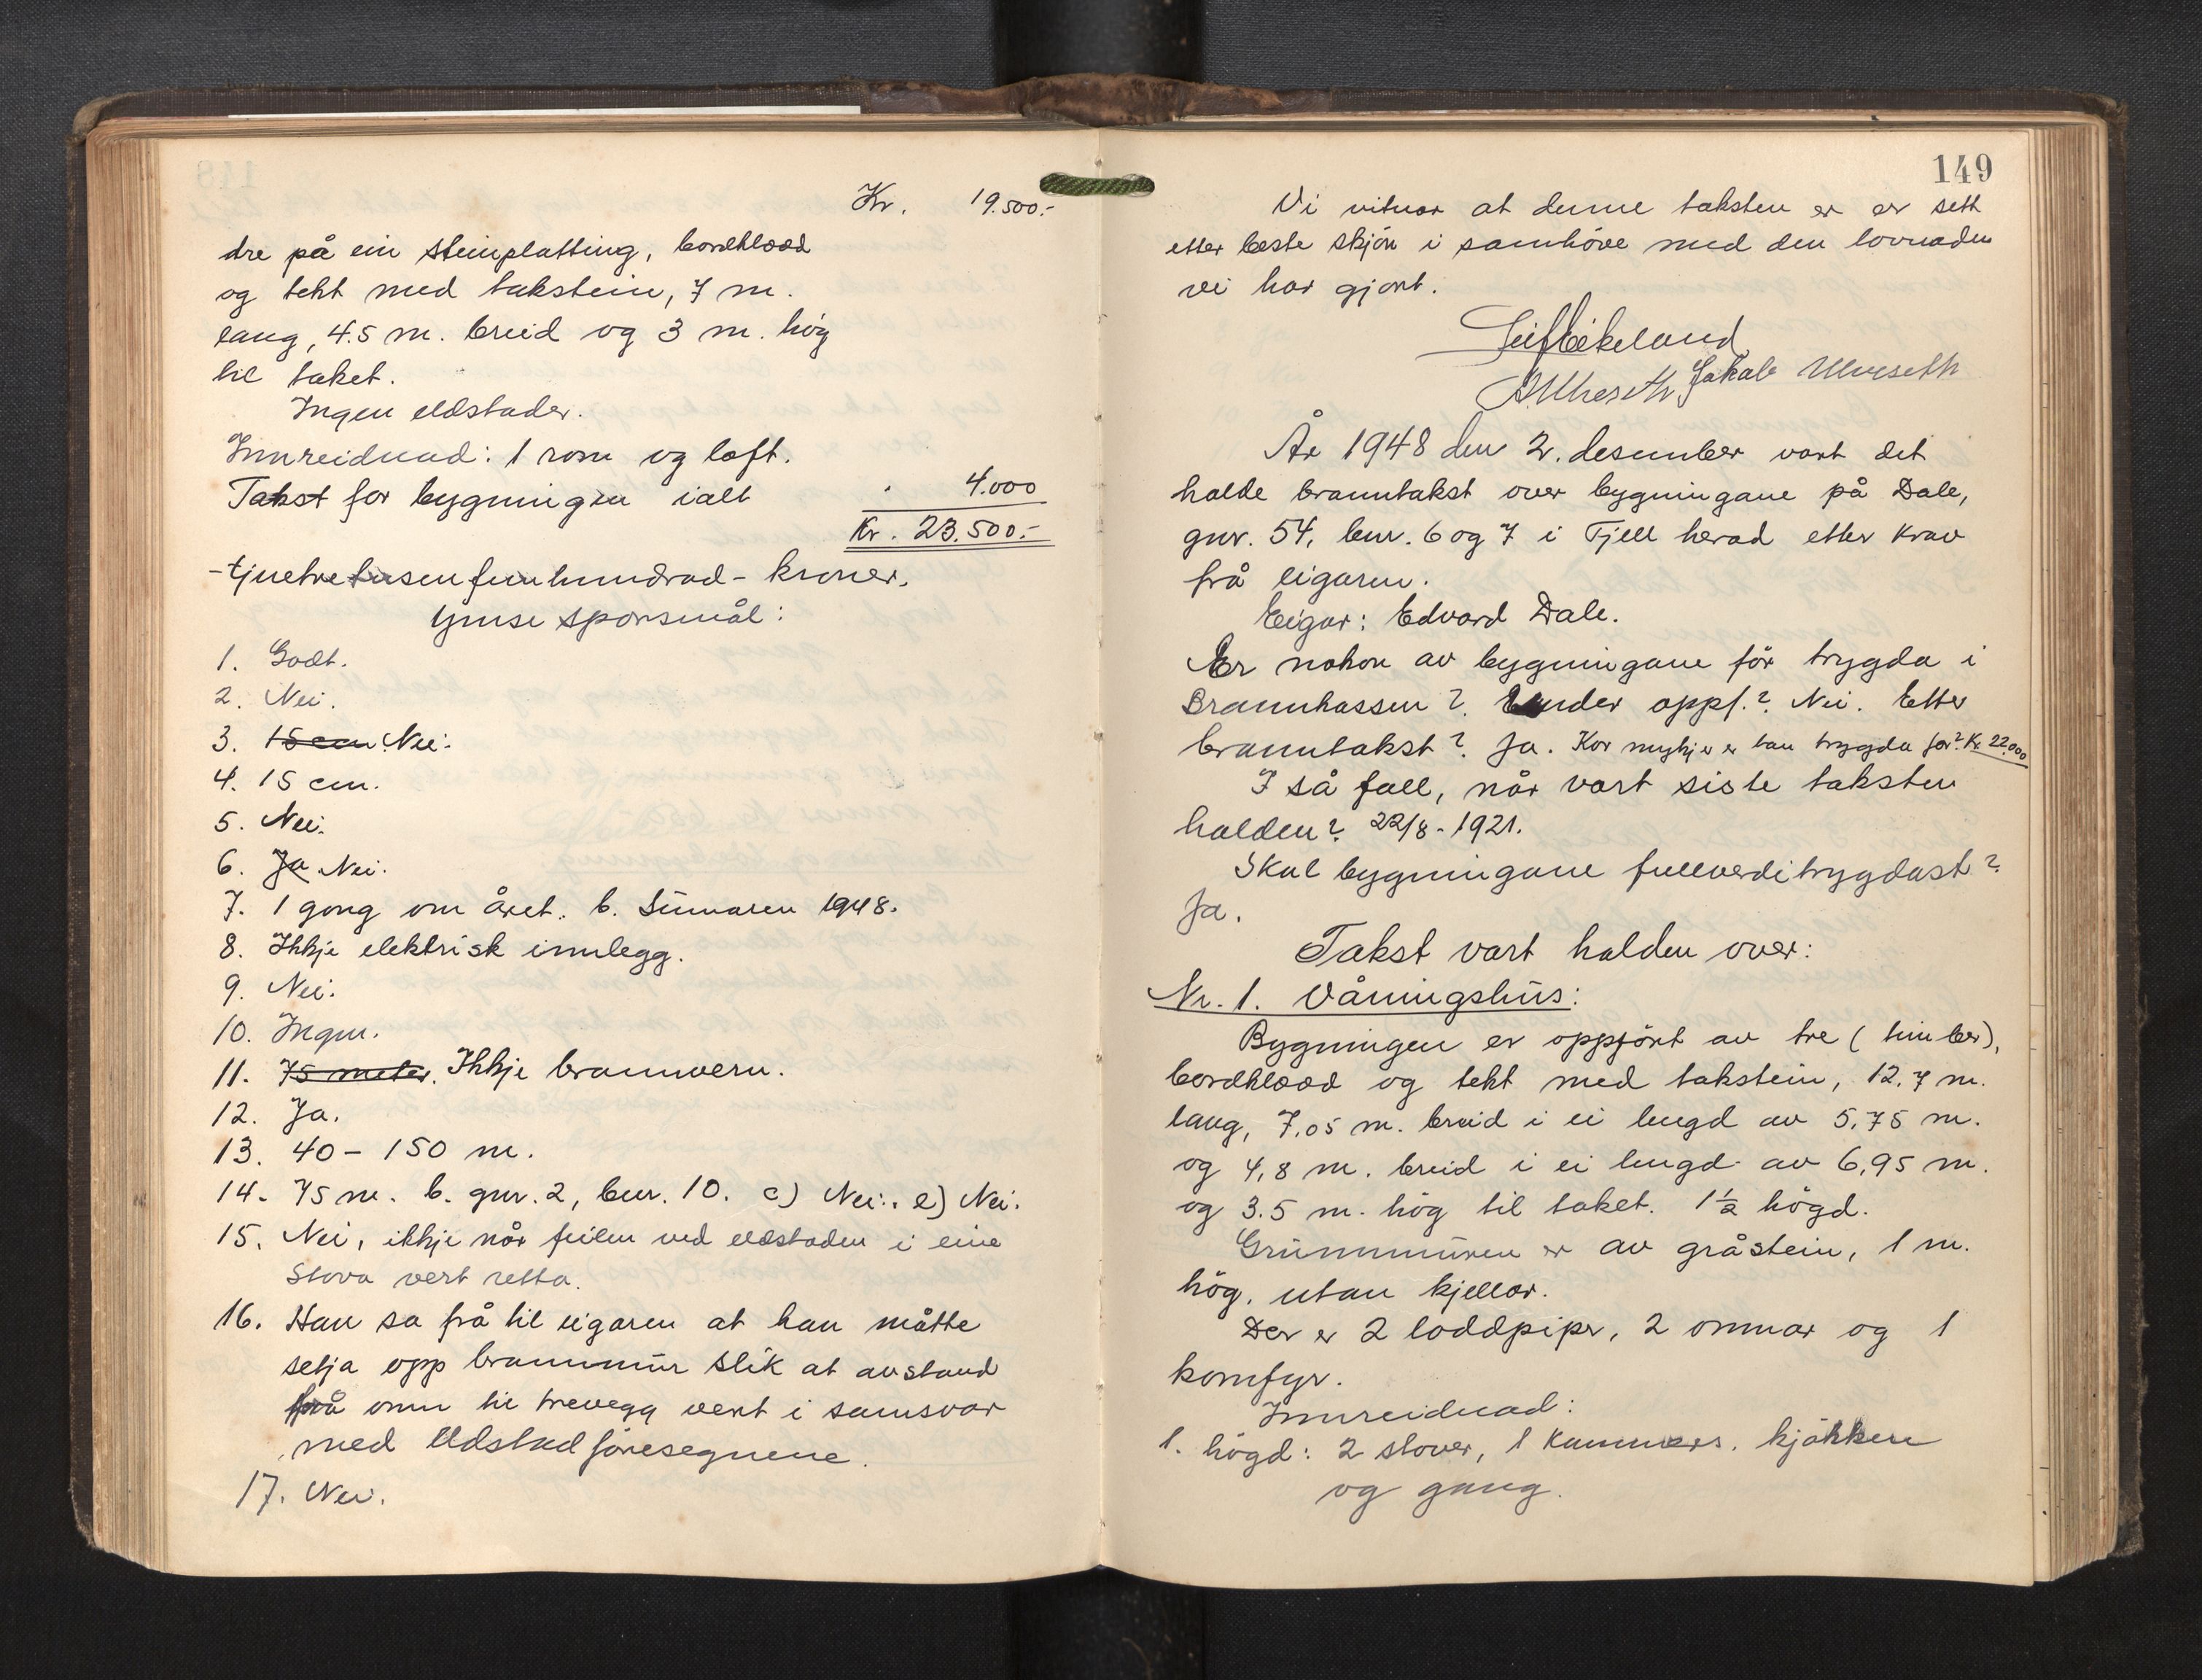 Kr. 19.500.-
dre på ein steinplatting, bordklædd
og tekt med takstein, 7 m.
lang, 4.5 m. breid og 3 m. høg
til taket.
Ingen eldstader.
Innreidnad: 1 rom og loft.
Takst for bygningen ialt 4.000
Kr. 23.500.-
-tjuetretusenfemhundrad- kroner.
Ymse spørsmål:
1. Godt.
2. Nei.
3. 15 cm Nei.
4. 15 cm.
5. Nei.
6. Ja Nei.
7. 1 gong om året. b. Sumaren 1948.
8. Ikkje elektrisk innlegg.
9. Nei.
10. Ingen.
11. 75 meter. Ikkje brannvern.
12. Ja.
13. 40 - 150 m.
14. 75 m. b. gnr. 2, bnr. 10. c) Nei. e) Nei.
15. Nei, ikkje når feilen ved eldstaden i eine
stova vert retta.
16. Han sa frå til eigaren at han måtte
setja opp brannmur slik at avstand
frå omn til trevegg vert i samsvar
med Eldstadføresegnene.
17. Nei.
149
Vi vitnar at denne taksten er er sett
etter beste skjøn i samhøve med den lovnaden
vi har gjort.
Leif Eikeland
A Ulveseth Jakob Ulveseth
År 1948 den 2. desember vart det
halde branntakst over bygningane på Dale,
gnr. 54, bnr. 6 og 7 i Fjell herad etter krav
frå eigaren.
Eigar: Edvard Dale.
Er nokon av bygningane før trygda i
Brannkassen? Under oppf.? Nei. Etter
branntakst? Ja. Kor mykje er han trygda for? Kr. 22.000
I så fall, når vart siste taksten
halden? 22/8 - 1921.
Skal bygningane fullverditrygdast?
Ja.
Takst vart halden over:
Nr. 1. Våningshus:
Bygningen er oppført av tre (timber),
bordklædd og tekt med takstein, 12.7 m.
lang, 7,05 m. breid i ei lengd av 5,75 m.
og 4,8 m. breid i ei lengd av 6,95 m.
og 3.5 m. høg til taket. 1½ høgd.
Grunnmuren er av gråstein, 1 m.
høg, utan kjellar.
Der er 2 loddpiper, 2 omnar og 1
komfyr.
Innreidnad:
1. høgd: 2 stover, 1 kammers, kjøkken
og gang.